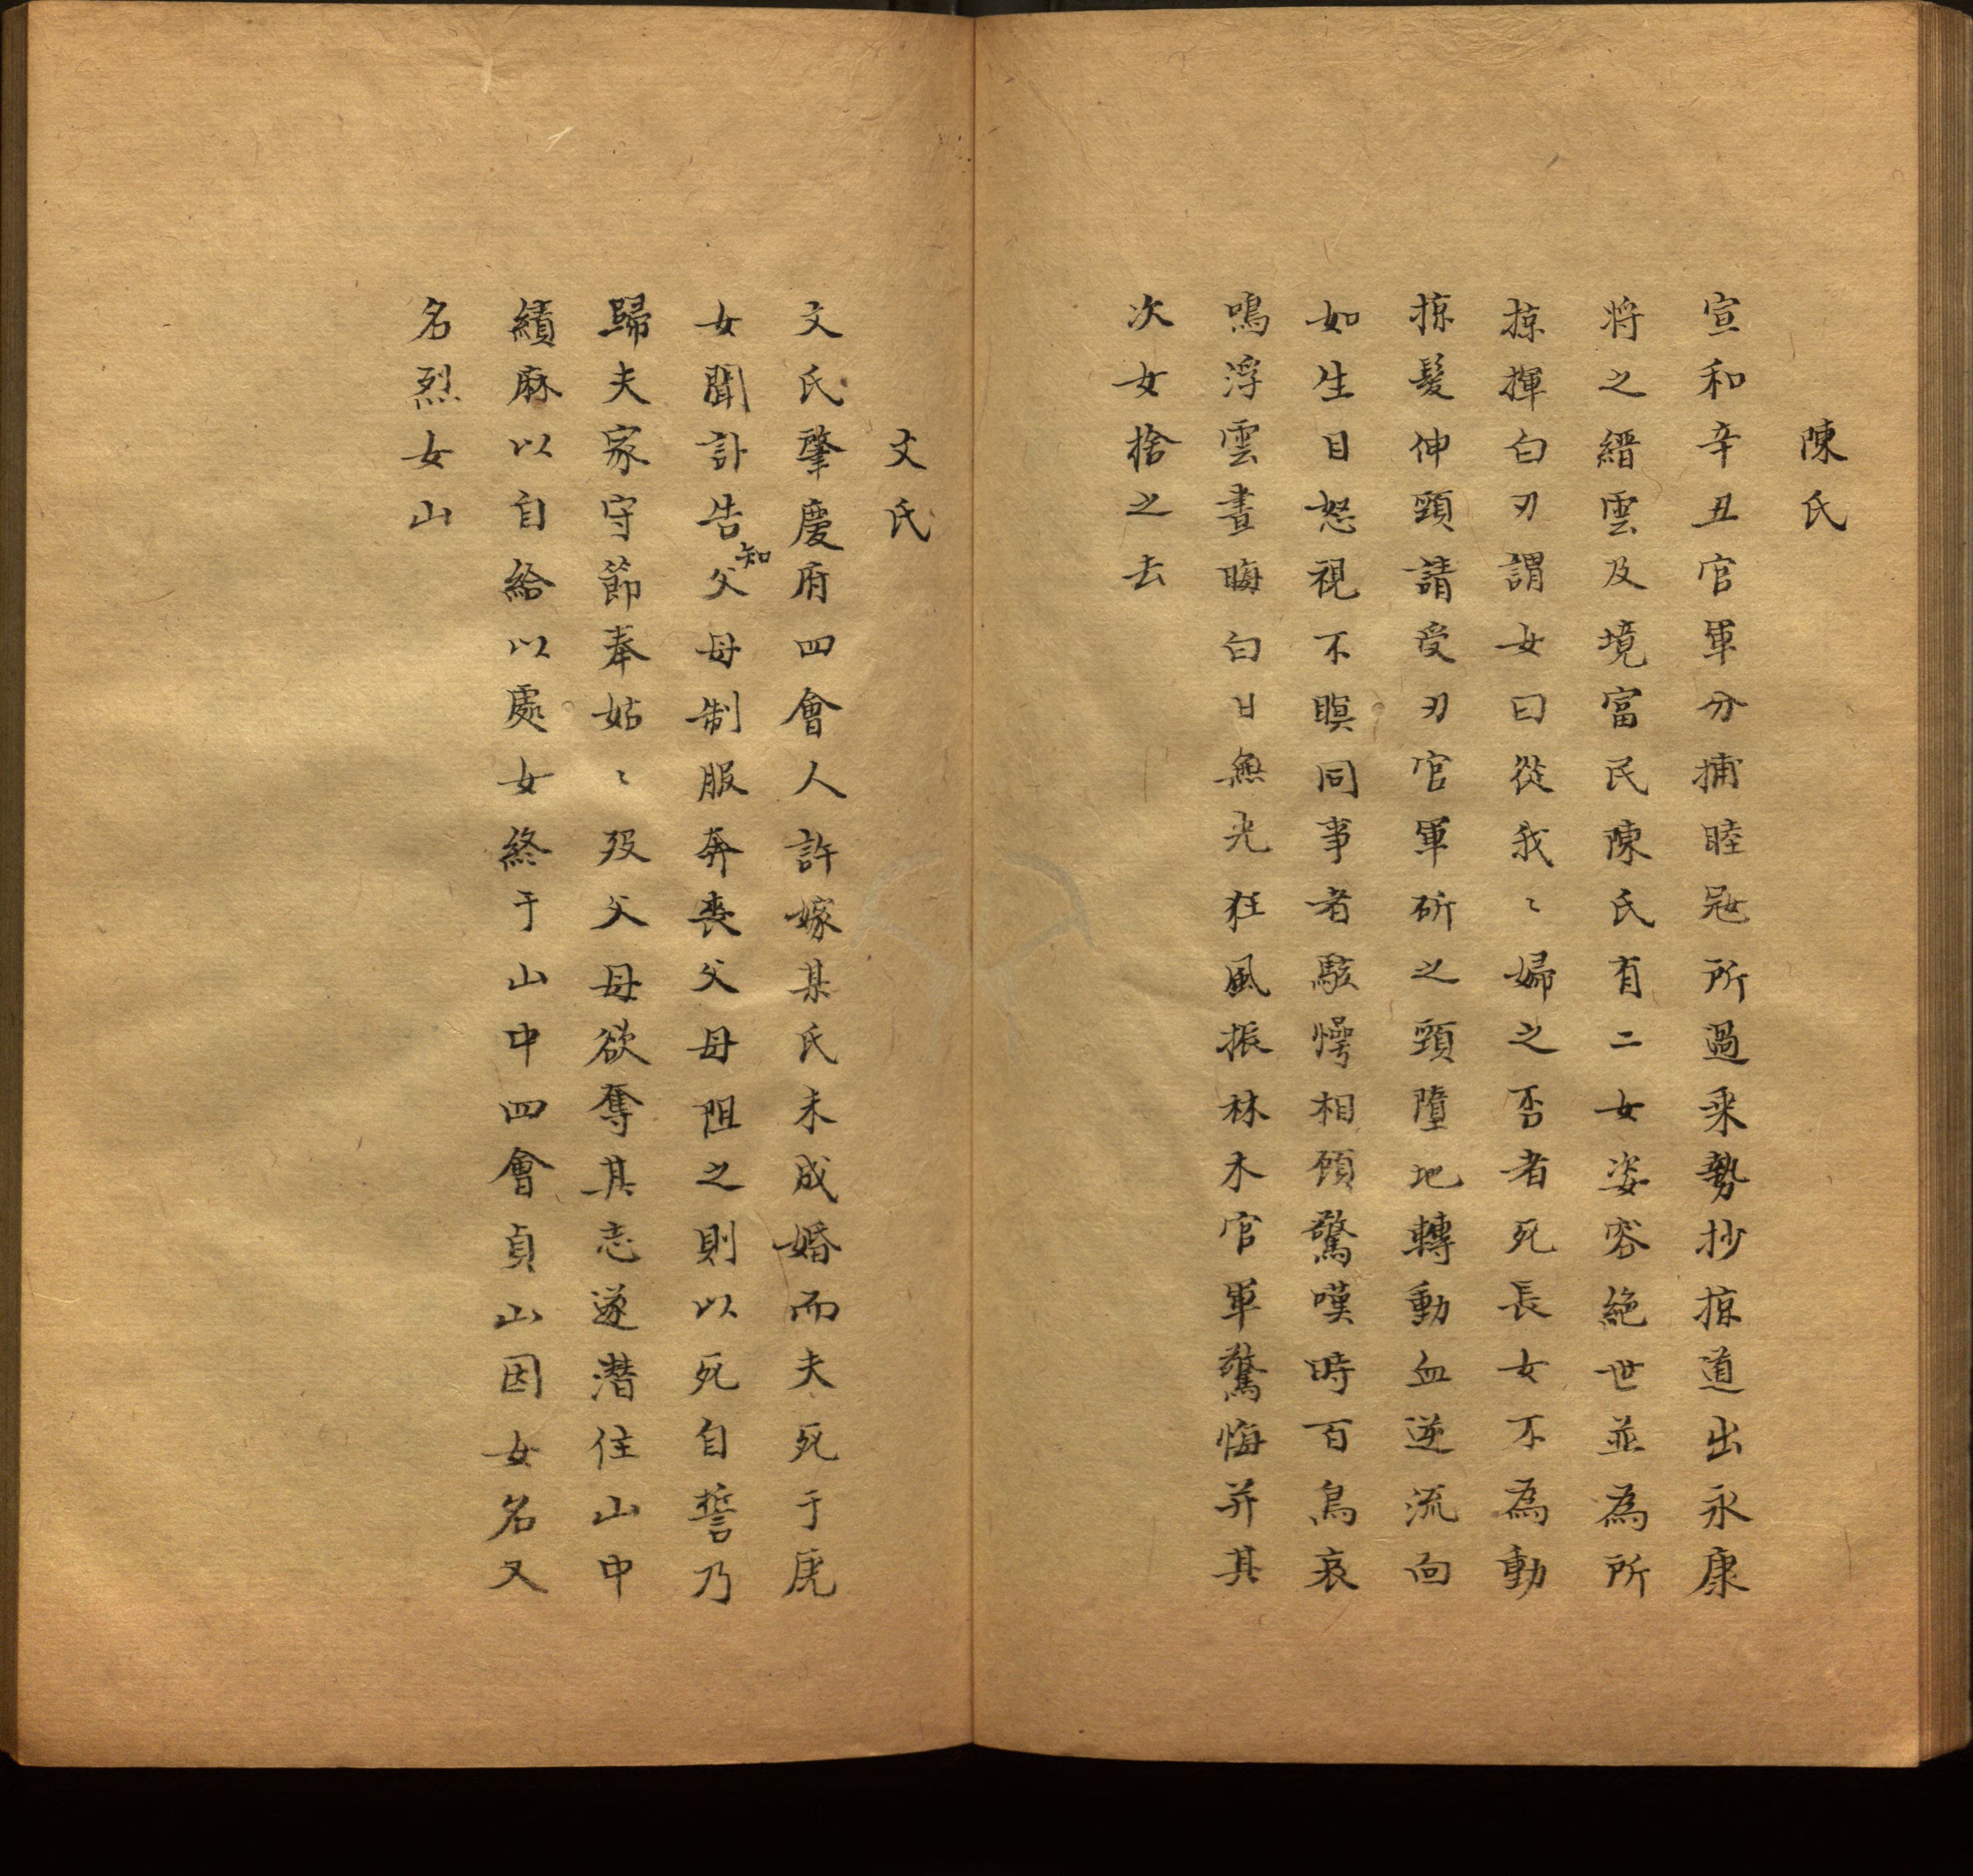 陳氏
宣和辛丑官軍分捕睦冦所過乘勢抄掠道出永康
将之縉雲及境富民陳氏有二女姿容絶世並為所
掠揮白刃謂女曰從我〻婦之否者死長女不為動
掠髮伸頸請受刃官軍斫之頸墮地轉動血逆流向
如生目怒視不瞑同事者駭愕相顧驚嘆時百鳥哀
鳴浮雲晝晦白日無光狂風振林木官軍驚悔并其
次女捨之去
文氏
文氏肇慶府四會人許嫁某氏未成婚而夫死于虎
女聞訃告知父母制服奔喪父母阻之則以死自誓乃
歸夫家守節奉姑〻歿父母欲奪其志遂潛住山中
績麻以自給以處女終于山中四會貞山因女名又
名烈女山